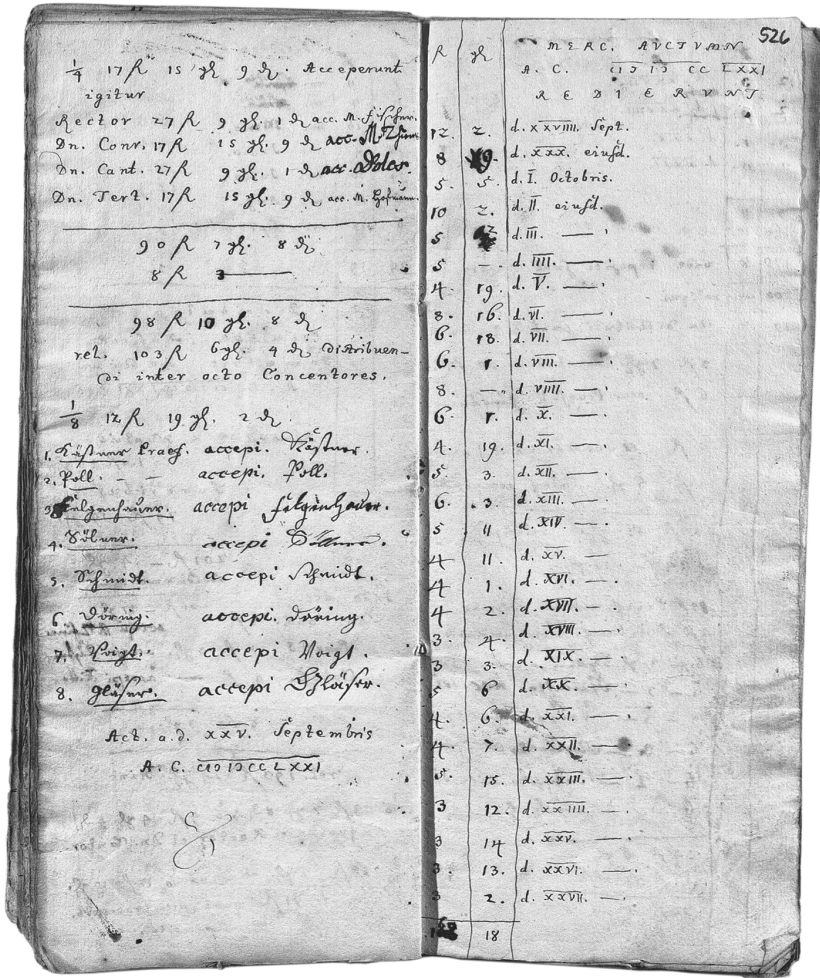 1/4 17 R 15 gl. 9 d. Acceperunt
igitur
Rector 27 R 9 gl. 1 d acc. M. Fischer.
Dn. Conr. 17 R 15 gl. 9 d acc. M.
Dn. Cant. 27 R 9 gl. 1 d acc. Doles.
Dn. Tert. 17 R 15 gl. 9 d acc. M. Hofmann.
90 R 7 gl. 8 d
8 R 3 —
98 R 10 gl. 8 d
rel. 103 R 6 gl. 4 d Distribuen-
di inter octo Concentores.
1/8 12 R 19 gl. 2 d.
1. Kästner Praef. accepi. Kästner.
2. Poll. – – accepi. Poll.
3. Felgenhauer. accepi Felgenhauer.
4. accepi
5. Schmidt. accepi Schmidt.
6. Döring. accepi. Döring.
7. Voigt. accepi Voigt.
8. Gläser. accepi Gläser.
Act. a.d. XXV. Septembris
A. C. CIↃIↃCCLXXI
526
R gl. MERC. AVCTVMN
A. C. CIↃIↃCCLXXI
REDIERVNT
12. 2. d. XXVIIII. Sept.
8 19. d. XXX. eiusd.
5. 5. d. I. Octobris.
10 2. d. II. eiusd.
5 d. III. —
5 . d. IIII. —
4 19. d. V. —
8. 16. d. VI. —
6. 18. d. VII. —
6. 1. d. VIII. —
8. —. d. VIIII. —
6. 1. d. X. —
4. 19. d. XI. —
5 3. d. XII. —
6. 3. d. XIII. —
5 11 d. XIV. —
4 11. d. XV. —
4 1. d. XVI. —
4 2. d. XVII. —
3. 4. d. XVIII. —
3 3. d. XIX. —
5 6 d. XX. —
4. 6. d. XXI. —
4 7. d. XXII. —
5. 15. d. XXIII. —
3 12. d. XXIIII. —
3 14 d. XXV. —
3. 13. d. XXVI. —
3 2. d. XXVII. —
18